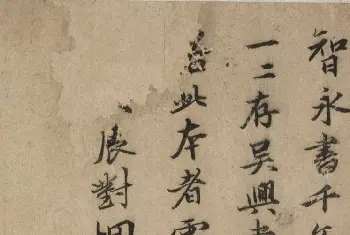 智永書千
一二存吳興
此本者
展對